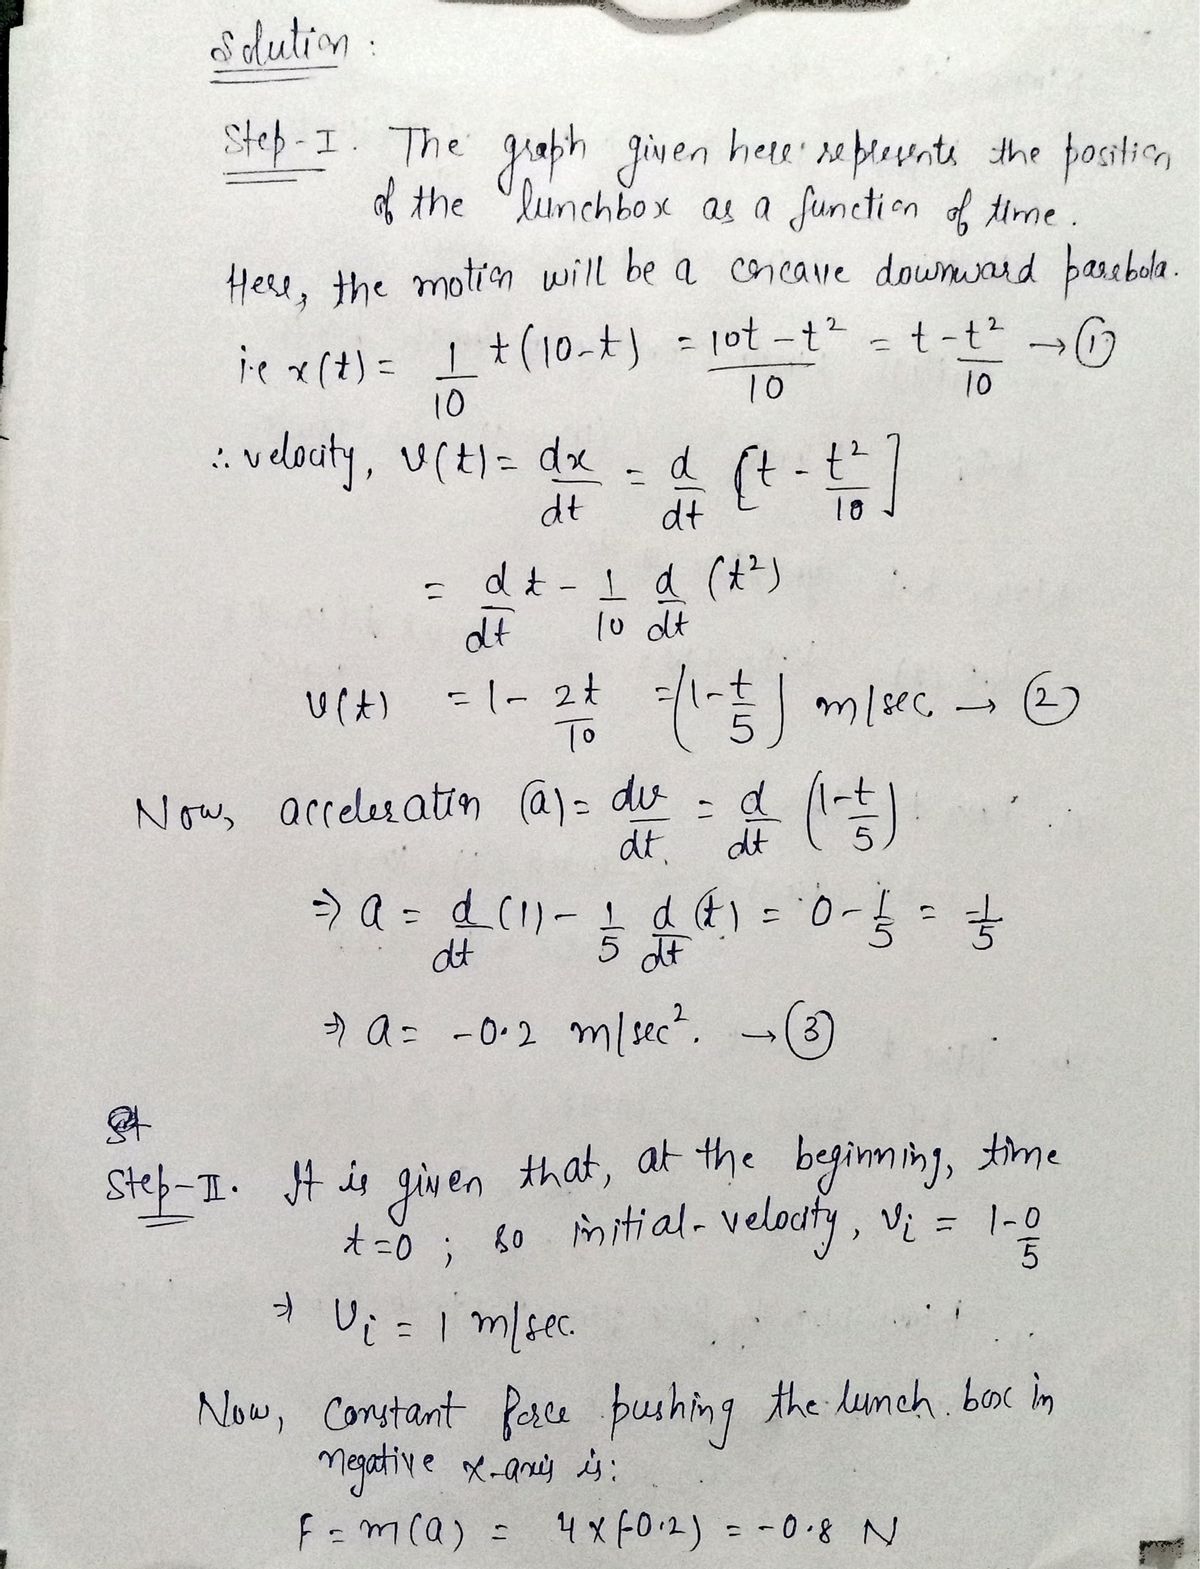 Solution :
Step-I. The graph given here represents the position
of the lunchbox as a function of time.
Here, the motion will be a concave downward parabola.
i.e x(t) = 1/10 t(10-t) = 10t - t²/10 = t - t²/10 → ①
∴ velocity, v(t) = dx/dt = d/dt [t - t²/10]
= d/dt t - 1/10 d/dt (t²)
v(t) = 1 - 2t/10 = (1 - t/5) m/sec → ②
Now, acceleration (a) = dv/dt = d/dt (1 - t/5)
⇒ a = d/dt (1) - 1/5 d/dt (t) = 0 - 1/5 = -1/5
⇒ a = -0.2 m/sec². → ③
Step-II. It is given that, at the beginning, time
t=0 ; so initial-velocity, vi = 1-0/5
⇒ vi = 1 m/sec.
Now, Constant force pushing the lunch box in
negative x-axis is:
F = m(a) = 4 x (-0.2) = -0.8 N